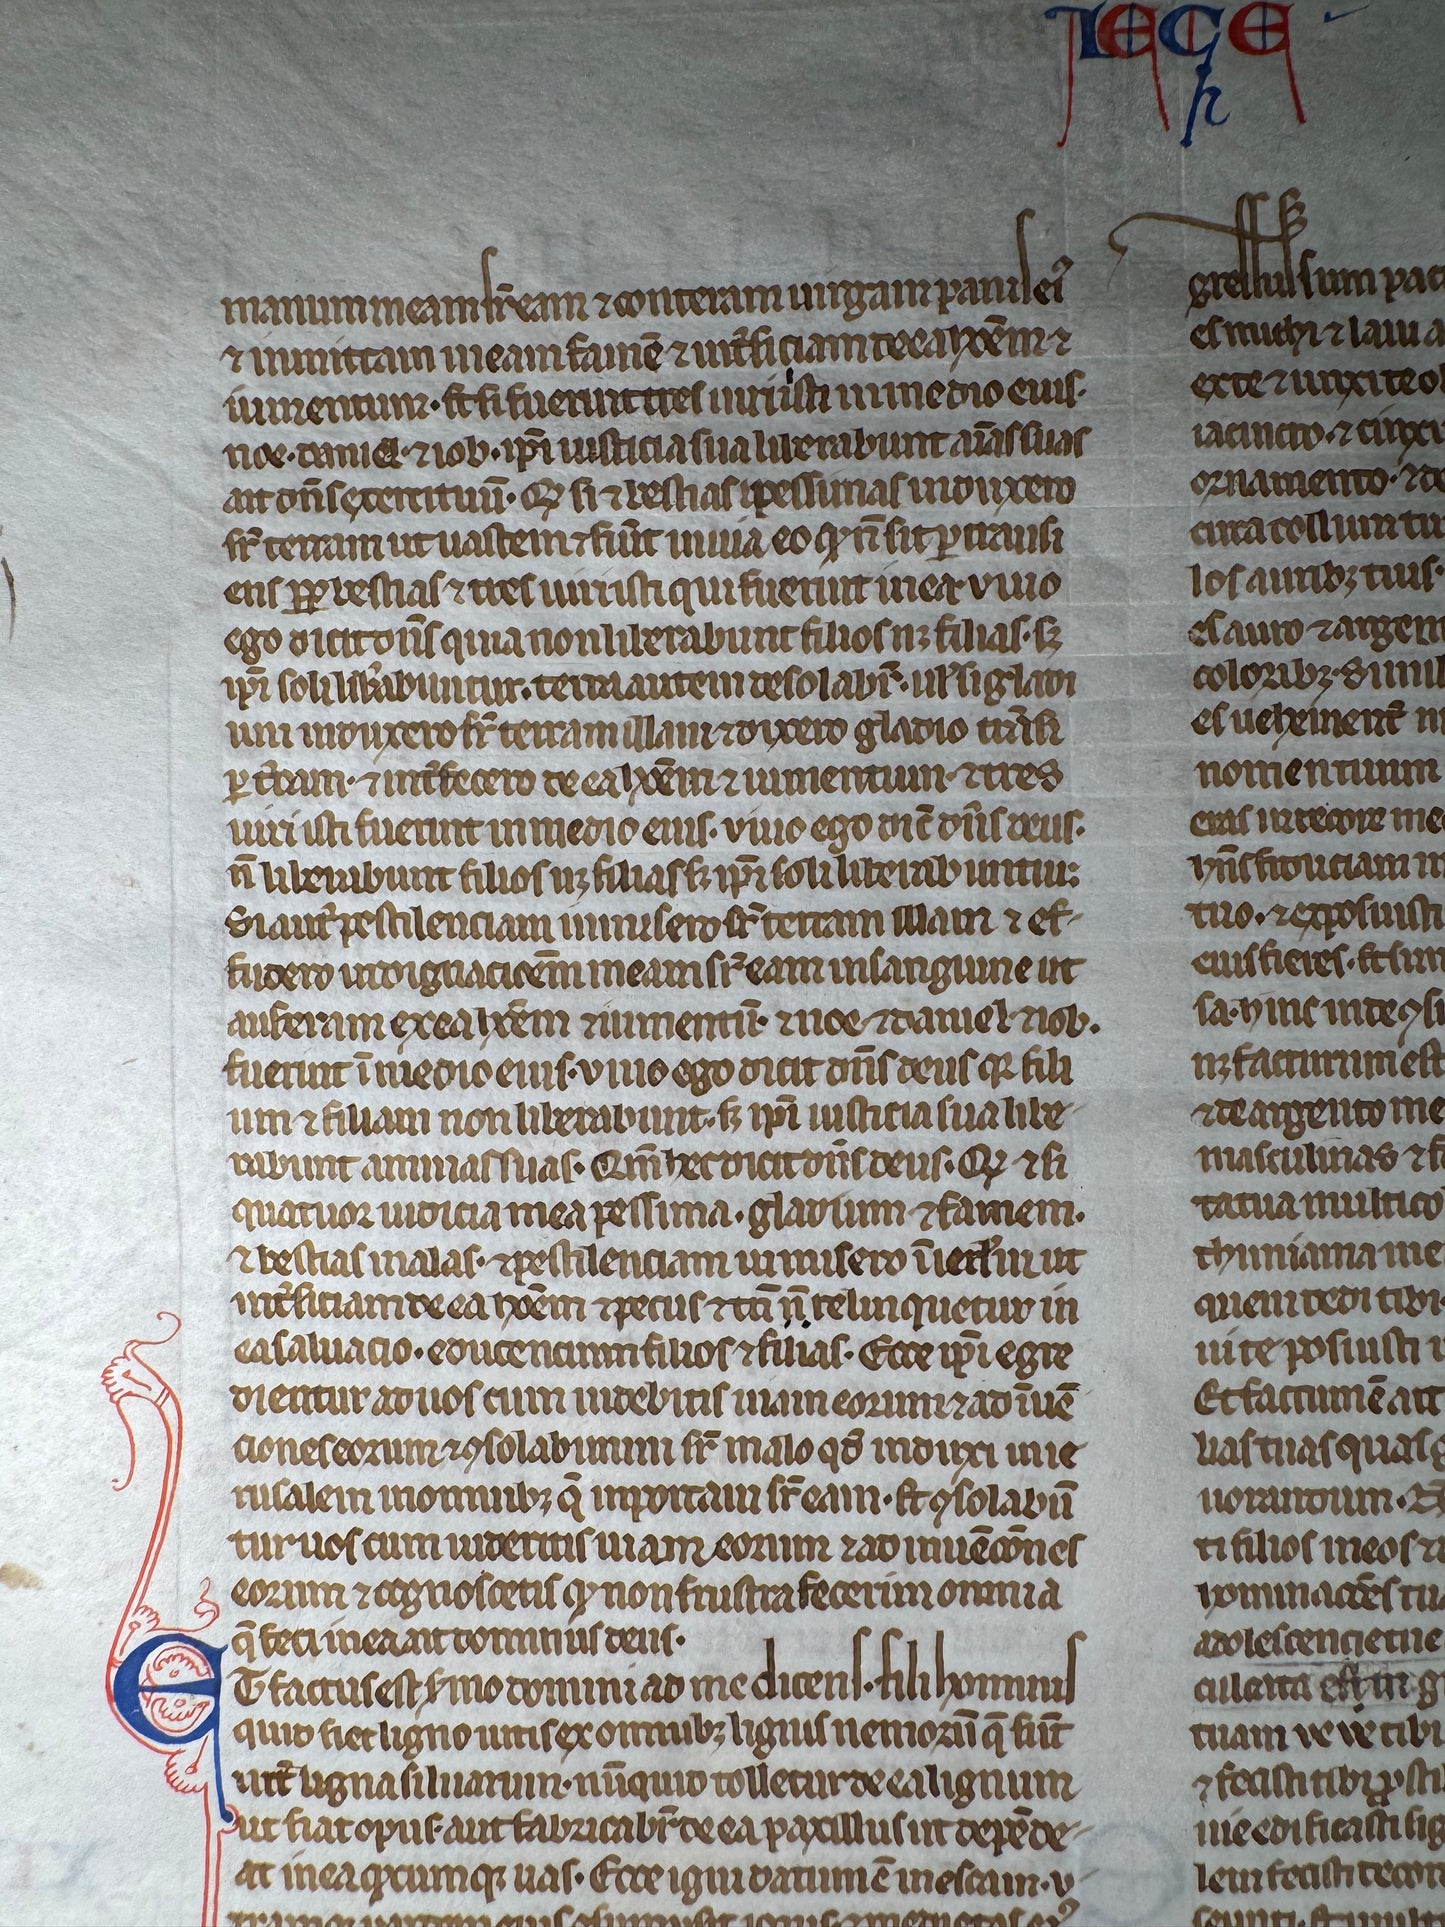 IECE
h
manum meam sr̄ eam ⁊ conteram uirgam panis ei9
⁊ inmittam in eam famē ⁊ int̄ficiam de ea hoēm ⁊
iumentum. Et si fuerint tres uiri isti in medio eius.
noe. daniel. ⁊ iob. ip̄i iusticia sua liberabunt aīas suas
ait dn̄s exercituū. Qꝫ si ⁊ bestias pessimas induxero
sr̄ terram ut uastem ⁊ fiūt inuia eo qꝫ n̄ sit ꝑtransi
ens ꝓpꝑ bestias ⁊ tres uiri isti qui fuerint in ea. viuo
ego dicit dn̄s quia non liberabunt filios nꝫ filias. sꝫ
ip̄i soli lib̄abuntur. terra autem desolabr̄. uł si gladi
um induxero sr̄ terram illam ⁊ dixero gladio tn̄si
ꝑ t̄ram. ⁊ int̄fecero de ea hoēm ⁊ iumentum. ⁊ tres
uiri isti fuerint in medio eius. viuo ego dic̄ dn̄s deus.
n̄ liberabunt filios nꝫ filias sꝫ ip̄i soli liberabuntur.
Si aut̄ pestilenciam inmisero sr̄ terram illam ⁊ ef-
fudero indignacioēm meam sr̄ eam in sanguine ut
auferam ex ea hoēm ⁊ iumentū. ⁊ noe. ⁊ daniel. ⁊ iob.
fuerint ī medio eius. viuo ego dicit dn̄s deus qꝫ fili
um ⁊ filiam non liberabunt. sꝫ ip̄i iusticia sua libe-
rabunt animas suas. Qm̄ hec dicit dn̄s deus. Qꝫ ⁊ si
quatuor iudicia mea pessima. gladium ⁊ famem.
⁊ bestias malas. ⁊ pestilenciam inmisero ī ierłm ut
int̄ficiam de ea hoēm ⁊ pecus ⁊ tn̄ n̄ relinquetur in
ea saluacio. educencium filios ⁊ filias. Ecce ip̄i egre
dientur ad uos cum uidebitis uiam eorum ⁊ ad īuē
ciones eorum ⁊ ꝯsolabimini sr̄ malo qd̄ induxi in ie
rusalem in omnibꝫ q̄ inportaui sr̄ eam. Et ꝯsolabū
tur uos cum uideritis uiam eorum ⁊ ad inuēcōnes
eorum ⁊ cognoscetis qꝫ non frustra fecerim omnia
q̄ feci in ea ait dominus deus.
ET factus est s̄mo domini ad me dicens. fili hominis
quid fiet ligno uitis ex omnibꝫ lignis nemorū q̄ sūt
int̄ ligna siluarum. nūquid tolletur de ea lignum
ut fiat opus. aut fabricabr̄ de ea paxillus ut depēde-
at in ea qꝫcumqꝫ uas. Ecce igni datum ē in escam. v
gressus sum pac
es michi ⁊ laui a
ex te ⁊ unxi te ol
iacincto. ⁊ cinxi
ornamento. ⁊ de
circa collum tu
los auribꝫ tuis.
es auro ⁊ argen
coloribꝫ. Simil
es uehement̄
nomen tuum
eras in decore me
hn̄s fiduciam in
tuo. ⁊ exposuisti
eius fieres. Et sum
sa. hinc inde ꝯsu
nꝫ facturum est
⁊ de argento me
masculinas ⁊ f
ta tua multico
thimiama me
quem dedi tibi.
ui te posuisti
Et factum ē ait
lias tuas quas g
uorandum.
ti filios meos ⁊
hominacōēs tua
adolescencie tue
culcata es in
tuam ve ve tibi
⁊ fecisti tibi ꝓsti
uie edificasti sig
lem fecisti decor